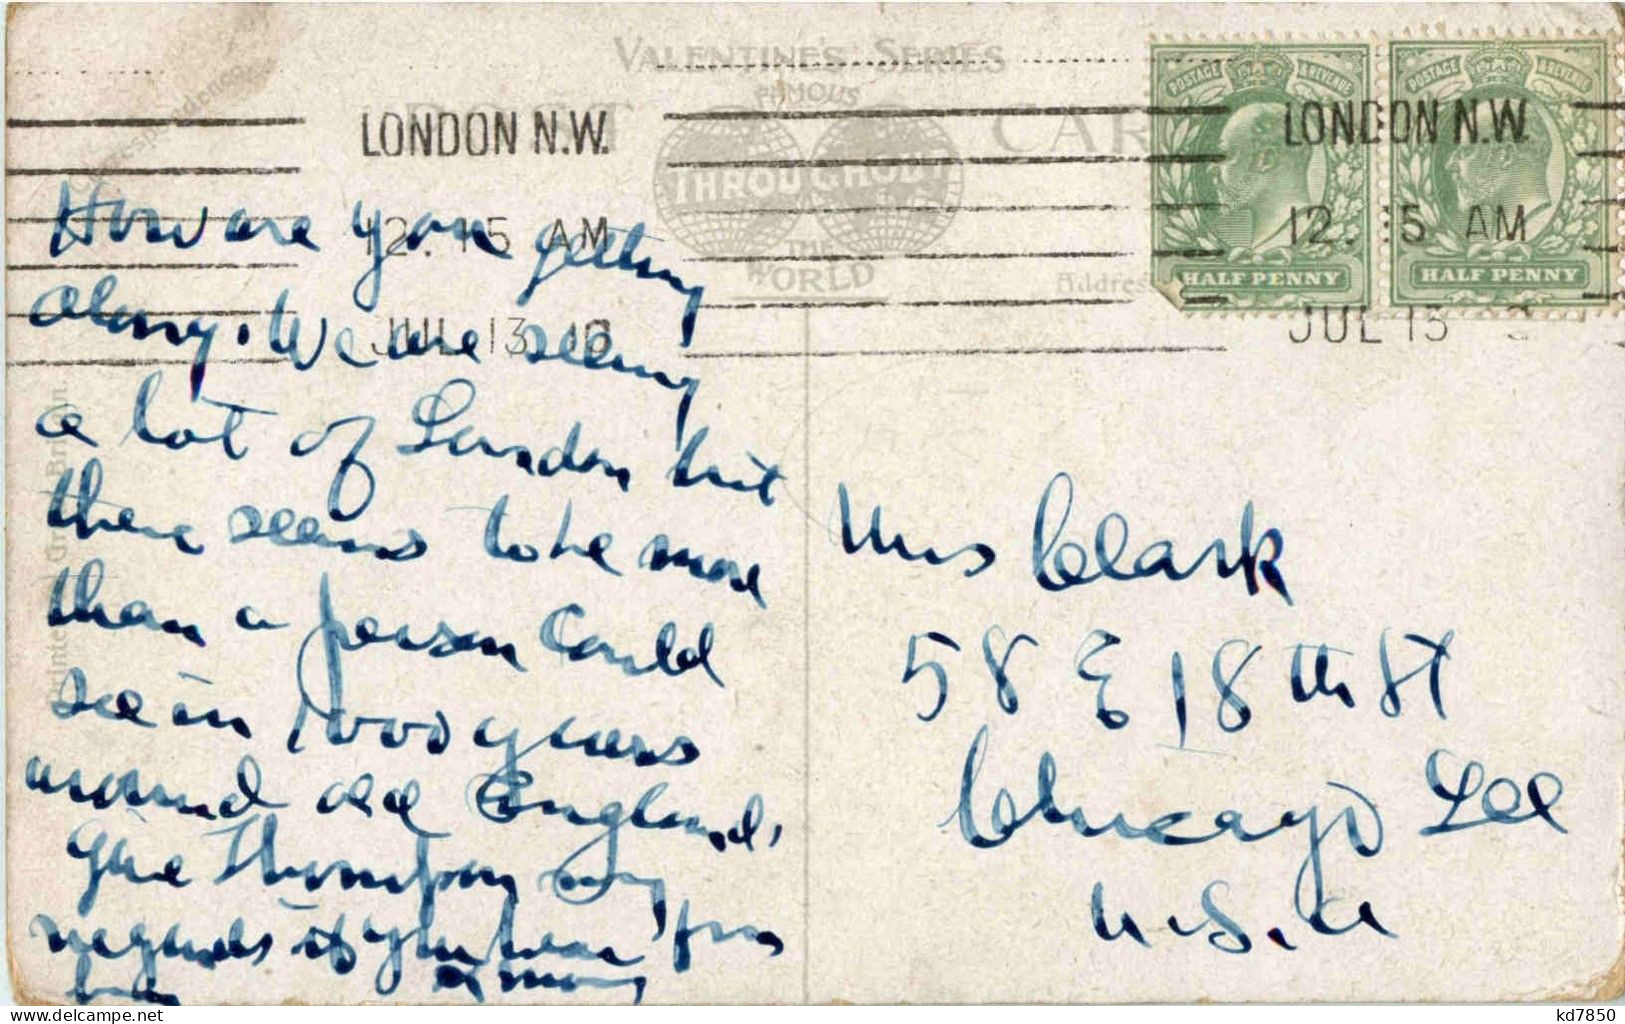 VALENTINE'S SERIES
FAMOUS
POST CAR
THROUGHOUT
THE
WORLD
Correspondence.
Address
Printed Great Britain.
LONDON N.W.
12.15 AM
JUL 13 10
POSTAGE & REVENUE
HALF PENNY
POSTAGE & REVENUE
HALF PENNY
LONDON N.W.
12. 15 AM
JUL 13
How are you getting
along. We are seeing
a lot of London but
there seems to be more
than a person could
see in 1000 years
around old England.
Give Thompson my
regards if you hear from
him
Mrs Clark
58 E 18th St
Chicago Ill
U.S.A
kd7850
delcampe.net